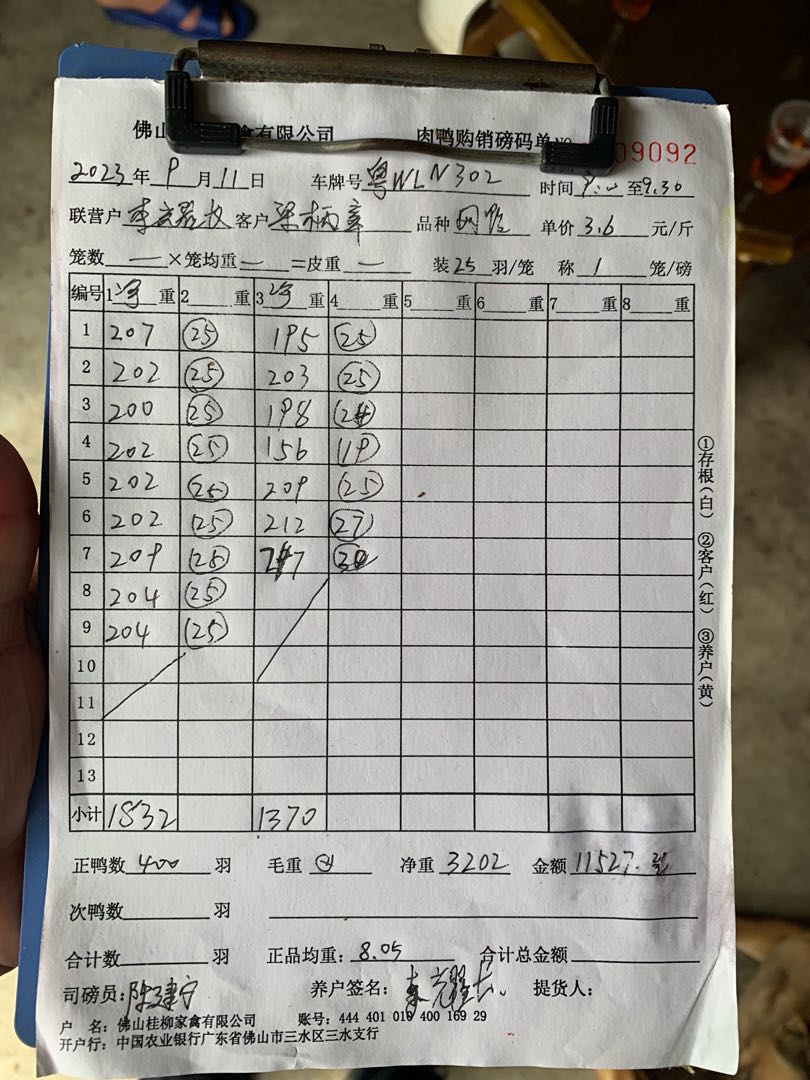 佛山 家禽有限公司 肉鸭购销磅码单 09092
2023年 9月11日 车牌号 粤WLN302 时间 至9.30
联营户 客户 梁柄章 品种 单价 3.6 元/斤
笼数 — ×笼均重 — =皮重 — 装 25 羽/笼 称 1 笼/磅
编号 1 净 重 2 重 3 净 重 4 重 5 重 6 重 7 重 8 重
1 207 25 195 25
2 202 25 203 25
3 200 25 198 24
4 202 25 156 19
5 202 25 209 25
6 202 25 212 27
7 209 25
8 204 25
9 204 25
10
11
12
13
小计 1832 1370
正鸭数 400 羽 毛重 净重 3202 金额 11527.
次鸭数 羽
合计数 羽 正品均重: 8.05 合计总金额
司磅员: 陈建宁 养户签名: 提货人:
户 名: 佛山桂柳家禽有限公司 账号: 444 401 010 400 169 29
开户行: 中国农业银行广东省佛山市三水区三水支行
①存根(白) ②客户(红) ③养户(黄)